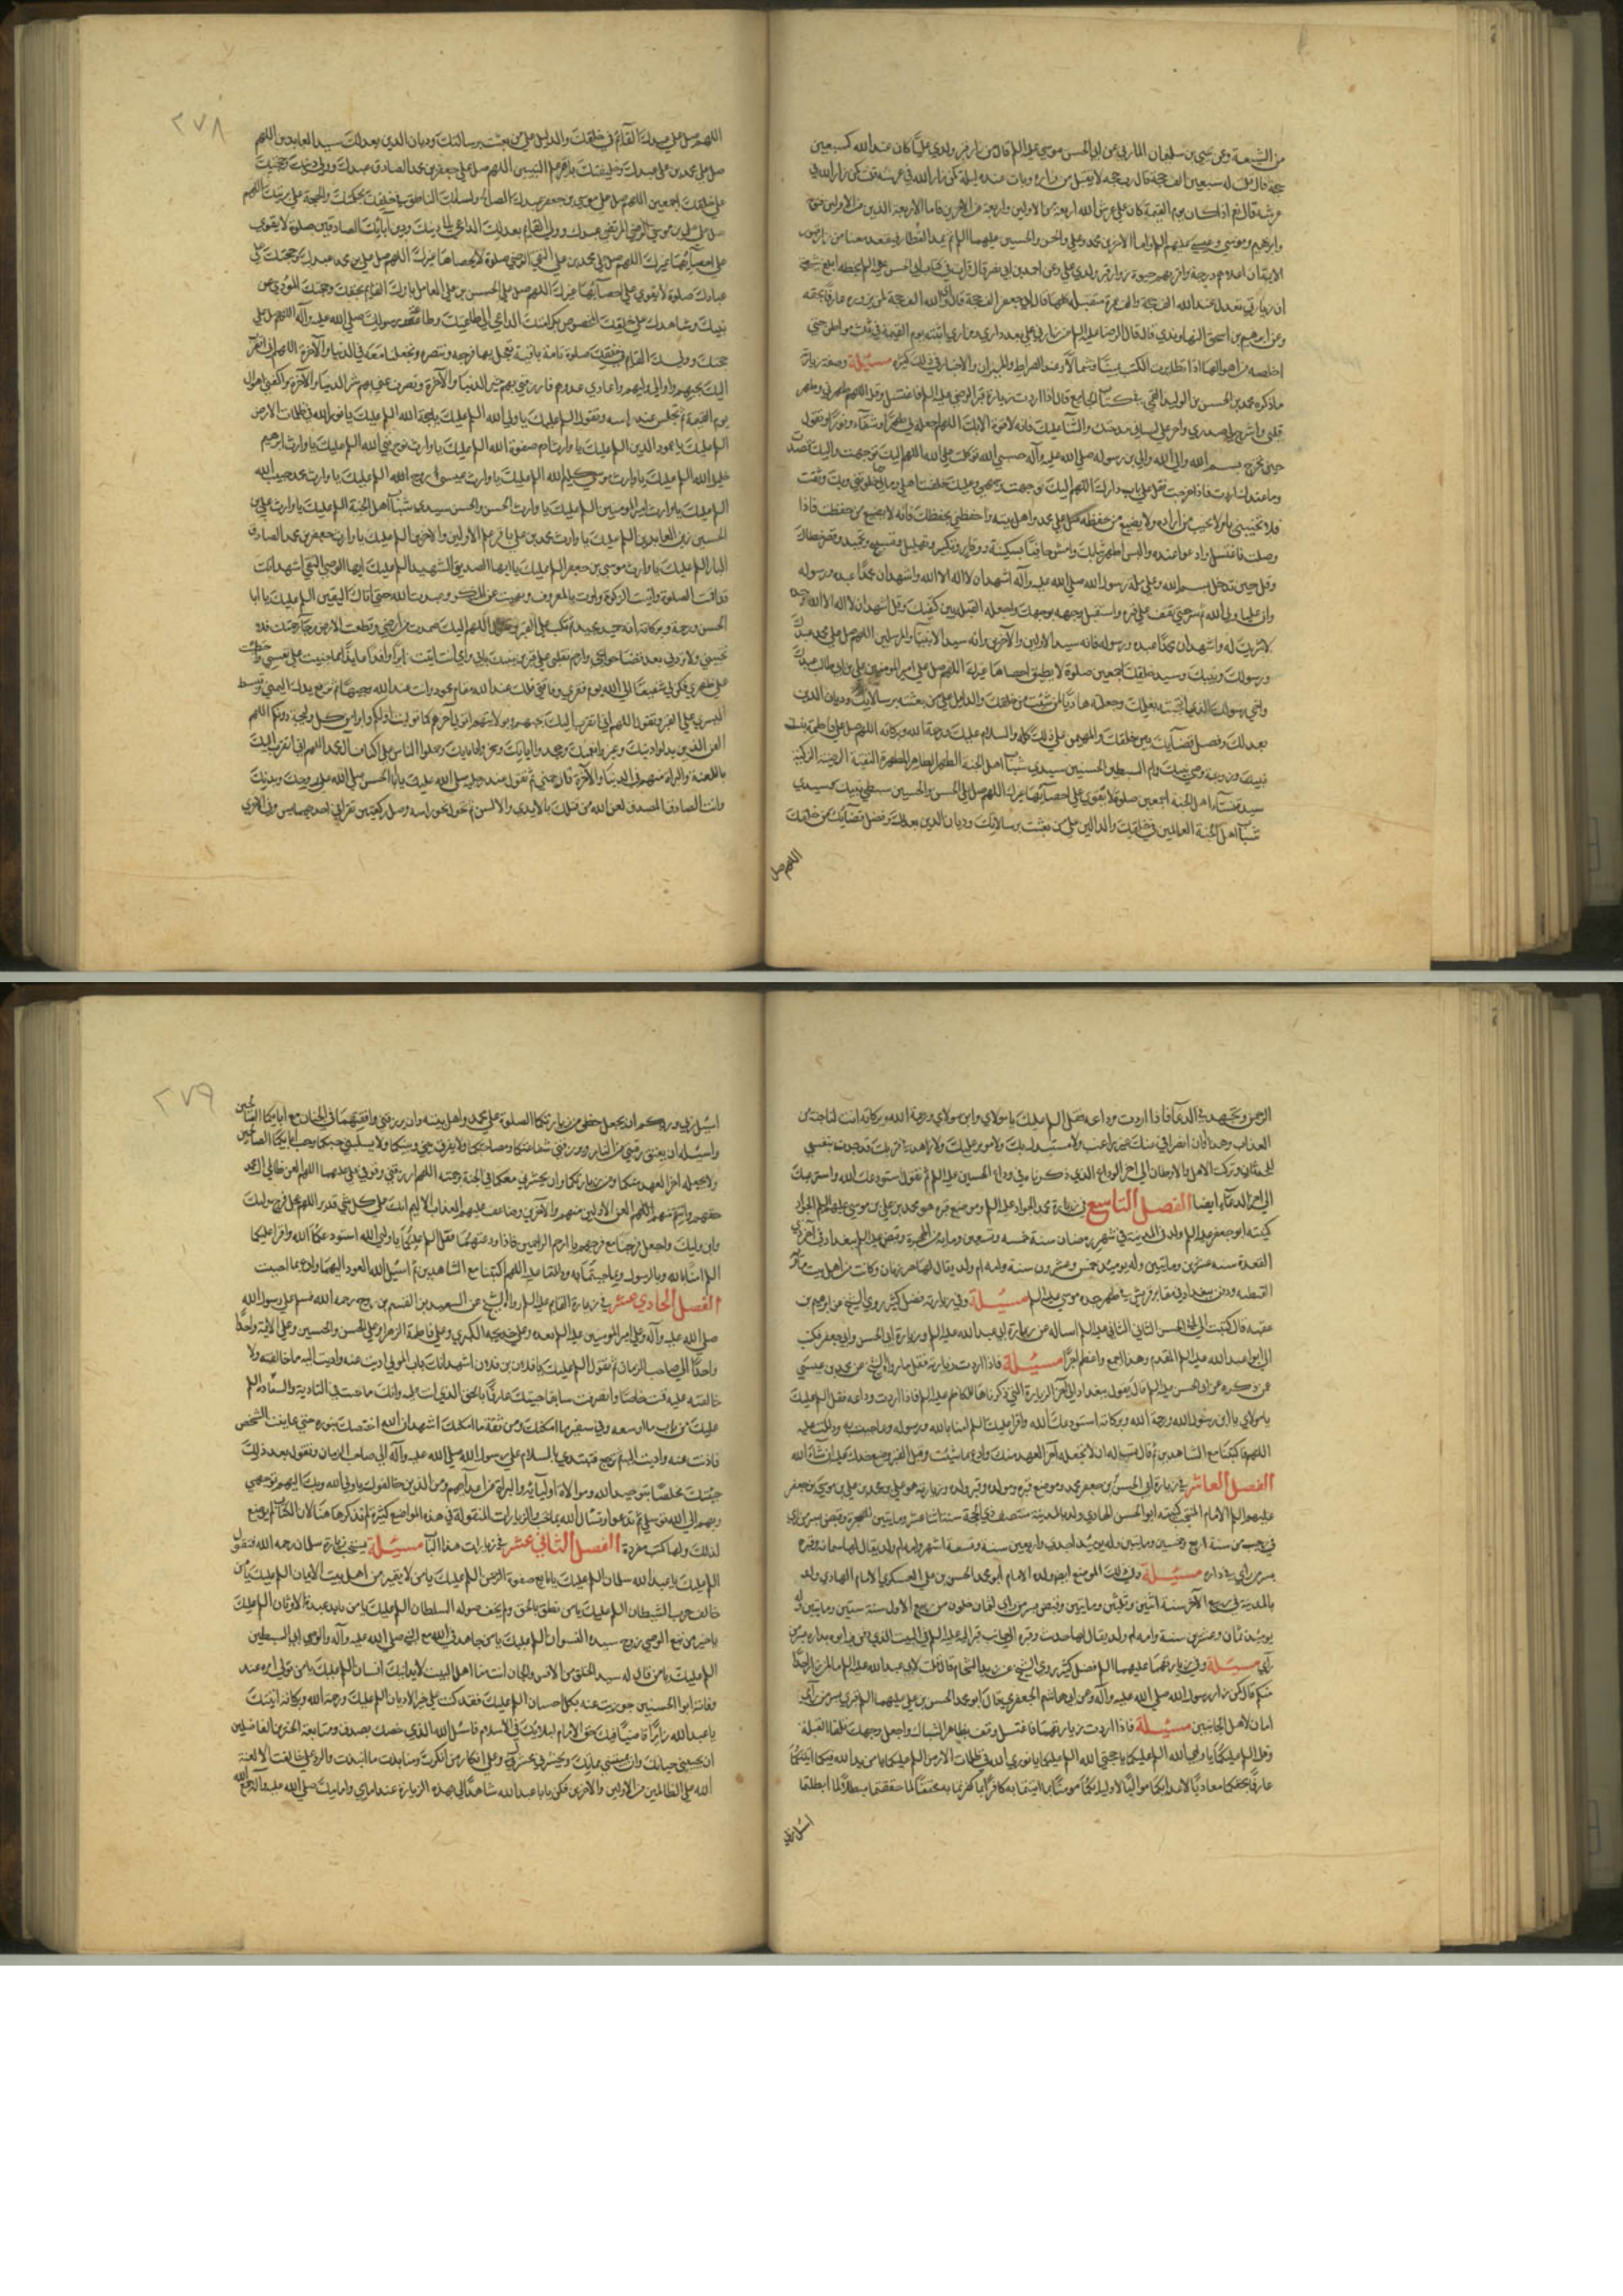 من الشيعة وعن يحيى بن سليمان المازني عن ابي الحسن موسى عليه السلام قال من زار قبر ولدي علي كان عند الله كسبعين
حجة قال قلت له سبعين الف حجة قال رب حجة لا تقبل من زاره وبات عنده ليلة كمن زار الله في عرشه قلت كمن زار الله في
عرشه قال نعم اذا كان يوم القيمة كان على عرش الله اربعة من الاولين واربعة من الاخرين فاما الاربعة الذين من الاولين فنوح
وابرهيم وموسى وعيسى عليهم السلام واما الاخرين محمد وعلي والحسن والحسين عليهما السلام ثم يمد القطار فيقعد معنا من زار قبور
الايمة الا ان اعلاهم درجة واقربهم حبوة زوار قبر ولدي علي وعن احمد بن ابي نصر قال قرات في كتاب ابي الحسن عليه السلام بخطه ابلغ شيعتي
ان زيارتي تعدل عند الله الف حجة والف عمرة متقبلة كلها قال قلت لابي جعفر الف حجة قال اي والله الف الف حجة لمن يزوره عارفا بحقه
وعن ابرهيم بن اسحق النهاوندي قال قال الرضا عليه السلام من زارني على بعد داري ومزاري اتيته يوم القيمة في ثلث مواطن حتى
اخلصه من اهوالها اذا تطايرت الكتب يمينا وشمالا وعند الصراط والميزان والاخبار في ذلك كثيرة مسئلة وصفة زيارة
ما ذكره محمد بن الحسن بن الوليد القمي في كتاب الجامع قال اذا اردت زيارة قبر الرضي عليه السلام فاغتسل وقل اللهم طهرني وطهر
قلبي واشرح لي صدري واجر على لساني مدحتك والثنا عليك فانه لا قوة الا بك اللهم اجعله لي طهورا وشفاء ونورا وتقول
حين تخرج بسم الله والى الله والى ابن رسوله صلى الله عليه وآله حسبي الله توكلت على الله اللهم اليك توجهت واليك قصدت
وما عندك اردت فاذا خرجت فقل على باب دارك اللهم اليك توجهت وجهي وعليك خلفت اهلي ومالي وما خولتني وبك وثقت
فلا تخيبني يا من لا يخيب من اراده ولا يضيع من حفظه صل على محمد واهل بيته واحفظني بحفظك فانه لا يضيع من حفظت فاذا
وصلت فاغتسل وادعوا عنده والبس اطهر ثيابك وامش حافيا بسكينة ووقار وتكبير وتهليل وتسبيح وتحميد وقصر خطاك
وقل حين تدخل بسم الله وعلى ملة رسول الله صلى الله عليه وآله اشهد ان لا اله الا الله واشهد ان محمدا عبده ورسوله
وان عليا ولي الله ثم سر حتى تقف على قبره واستقبل وجهه بوجهك واجعل القبلة بين كتفيك وقل اشهد ان لا اله الا الله وحده
لا شريك له واشهد ان محمدا عبده ورسوله فانه سيد الاولين والآخرين وانه سيد الانبياء والمرسلين اللهم صل على محمد عبدك
ورسولك ونبيك وسيد خلقك اجمعين صلوة لا يطيق احصاها غيرك اللهم صل على امير المومنين علي بن ابي طالب عبدك
واخي رسولك الذي انتجبته بعلمك وجعلته هاديا لمن شئت من خلقك والدليل على من بعثته برسالاتك وديان الدين
بعدلك وفصل قضايك بين خلقك والمهيمن على ذلك كله والسلام عليك ورحمة الله وبركاته اللهم صل على فاطمة بنت
نبيك وزوجة وصي نبيك وام السبطين الحسنين سيدي شباب اهل الجنة الطهر الطاهر المطهرة النقية الرضية الزكية
سيدة نساء اهل الجنة اجمعين صلوة لا يقوى على احصائها غيرك اللهم صل على الحسن والحسين سبطي نبيك وسيدي
شباب اهل الجنة القائمين في خلقك والدالين على من بعثت برسالاتك وديان الدين بعدلك وفصل قضائك بين خلقك
اللهم صل
٢٧٨
اللهم صل على عبدك القائم في خلقك والدليل على من بعثت برسالتك وديان الدين بعدلك سيد العابدين اللهم
صل على محمد بن علي عبدك وخليفتك باقر علم النبيين اللهم صل على جعفر بن محمد الصادق عبدك وولي دينك وحجتك
على خلقك اجمعين اللهم صل على موسى بن جعفر عبدك الصالح ولسانك الناطق في خلقك بحكمتك والحجة على بريتك اللهم
صل على علي بن موسى الرضي المرتضى عبدك وولي القائم بعدلك الداعي الى دينك ودين آبائك الصادقين صلوة لا يقوى
على احصائها غيرك اللهم صل على محمد بن علي التقي الرضي صلوة لا يحصاها غيرك اللهم صل على علي بن محمد عبدك وحجتك على
عبادك صلوة لا يقوى على احصائها غيرك اللهم صل على الحسن بن علي العامل بامرك القائم بحقك وحجتك المؤدي عن
نبيك وشاهدك على خلقك المخصوص بكرامتك الداعي الى طاعتك وطاعة رسولك صلى الله عليه وآله اللهم صل على
حجتك ووليك القائم في خلقك صلوة تامة باقية تعجل بها فرجه وتنصره وتجعلنا معه في الدنيا والآخرة اللهم اني اتقرب
اليك بحبهم واوالي وليهم واعادي عدوهم فارزقني بهم خير الدنيا والآخرة وتصرف عني بهم شر الدنيا والآخرة واكفني اهوال
يوم القيمة ثم تجلس عند راسه وتقول السلام عليك يا ولي الله السلام عليك يا حجة الله السلام عليك يا نور الله في ظلمات الارض
السلام عليك يا عمود الدين السلام عليك يا وارث ادم صفوة الله السلام عليك يا وارث نوح نبي الله السلام عليك يا وارث ابرهيم
خليل الله السلام عليك يا وارث موسى كليم الله السلام عليك يا وارث عيسى روح الله السلام عليك يا وارث محمد حبيب الله
السلام عليك يا وارث امير المومنين السلام عليك يا وارث الحسن والحسين سيدي شباب اهل الجنة السلام عليك يا وارث علي بن
الحسين زين العابدين السلام عليك يا وارث محمد بن علي باقر علم الاولين والاخرين السلام عليك يا وارث جعفر بن محمد الصادق
البار السلام عليك يا وارث موسى بن جعفر السلام عليك يا ايها الصديق الشهيد السلام عليك ايها الوصي التقي اشهد انك
قد اقمت الصلوة واتيت الزكوة وامرت بالمعروف ونهيت عن المنكر وعبدت الله حتى اتاك اليقين السلام عليك يا ابا
الحسن ورحمة وبركاته انه حميد مجيد ثم تنكب على القبر وتقول اللهم اليك صمدت من ارضي وقطعت الارض رجاء رحمتك فلا
تخيبني ولا تردني بغير قضا حوايجي وارحم تقلبي على قبر بن بنت نبي بابي وامي انت اتيتك زايرا وافدا عايذا مما جنيت على نفسي واحتطبت
على ظهري فكن لي شفيعا الى الله يوم فقري وفاقتي فلك عند الله مقام محمود وانت عند الله وجيها ثم ترفع يدك اليمنى وتبسط
اليسرى على القبر وتقول اللهم اني اتقرب اليك بحبهم وبولايتهم اتولى آخرهم كما توليت اولهم وابراء من كل وليجة دونهم اللهم
العن الذين بدلوا دينك وغيروا نعمتك وجحدوا اياتك وسخروا بامامك وحملوا الناس على اكتاف آل محمد اللهم اني اتقرب اليك
باللعنة والبراءة منهم في الدنيا والآخرة فان حتى ثم تقول عند رجليه صلى الله عليك يا ابا الحسن صلى الله على روحك وبدنك
وانت الصادق المصدق لعن الله من قتلك بالايدي والالسن ثم تحول نحو راسه وصل ركعتين تقرا في احديهما يس وفي الاخرى
الرحمن وتجتهد في الدعاء فاذا اردت وداعه فقل السلام عليك يا مولاي وابن مولاي ورحمة الله وبركاته انت لنا جنة من
العذاب وهذا اوان انصرافي عنك غير راغب ولا مستبدل بك ولا موثر عليك ولا زاهد في قربك وقد جدت بنفسي
للحدثان وتركت الاهل والاوطان الى اخر الوداع الذي ذكرناه في وداع الحسين عليه السلام ثم تقول استودعك الله واسترعيك
الى آخر الدعاء ايضا الفصل التاسع في زيارة محمد الجواد عليه السلام وموضع قبره هو محمد بن علي بن موسى عليهم السلام الجواد
كنيته ابو جعفر عليه السلام ولد في المدينة في شهر رمضان سنة خمسة وتسعين وماية من الهجرة وقبض عليه السلام ببغداد في آخر ذي
القعدة سنة عشرين ومايتين وله يوميذ خمس وعشرون سنة وامه ام ولد يقال لها خيزران وكانت من اهل بيت مارية
القبطية ودفن ببغداد في مقابر قريش في ظهر جده موسى عليه السلام مسئلة وفي زيارته فضل كثير روى الشيخ عن ابرهيم بن
عقبه قال كتبت الى ابي الحسن الثالث عليه السلام اساله عن زيارة ابي عبد الله عليه السلام وزيارة ابي الحسن وابي جعفر فكتب
الي ابو عبد الله عليه السلام المقدم وهذا اجمع واعظم اجرا مسئلة فاذا اردت زيارته فقل ما رواه الشيخ عن محمد بن عيسى
عمن ذكره عن ابي الحسن عليه السلام قال تقول ببغداد الى آخر الزيارة التي ذكرناها للكاظم عليه السلام فاذا اردت وداعه فقل السلام عليك
يا مولاي يا ابن رسول الله ورحمة الله وبركاته استودعك الله واقرا عليك السلام امنا بالله ورسوله وبما جئت به ودللت عليه
اللهم فاكتبنا مع الشاهدين ثم قال تساله ان لا يجعله آخر العهد منك وادع بما شئت وقبل القبر وضع خدك عليه ان شاء الله
الفصل العاشر في زيارة ابي الحسن بن جعفر محمد وموضع قبره ومولده وقبر ولده وزيارته هو علي بن محمد بن علي بن موسى بن جعفر
عليهم السلام الامام المنتجب كنيته ابو الحسن الهادي ولد بالمدينة منتصف ذي الحجة سنة اثنا عشر ومايتين للهجرة وقبض بسر من راى
في رجب من سنة اربع وخمسين ومايتين وله يوميذ احدى واربعين سنة وتسعة اشهر وامه ام ولد يقال لها سمانة وقبره
بسر من راى في داره مسئلة وفي ذلك الموضع ايضا ولده الامام ابو محمد الحسن بن علي العسكري الامام الهادي ولد
بالمدينة في ربيع الآخر سنة اثنين وثلثين ومايتين وقبض بسر من راى لثمان خلون من ربيع الاول سنة ستين ومايتين وله
يوميذ ثمان وعشرين سنة وامه ام ولد يقال لها حديث وقبره الى جانب قبر ابيه عليه السلام في البيت الذي دفن فيه ابوه بداره بسر من
راى مسئلة وفي زيارتهما عليهما السلام فضل كثير روى الشيخ عن زيد الشحام قال قلت لابي عبد الله عليه السلام ما لمن زار احدا
منكم قال كمن زار رسول الله صلى الله عليه وآله وعن ابي هاشم الجعفري قال قال ابو محمد الحسن بن علي عليهما السلام قبري بسر من راى
امان لاهل الجانبين مسئلة فاذا اردت زيارتهما فاغتسل وقف بظاهر الشباك واجعل وجهك تلقاء القبلة
وقل السلام عليكما يا وليي الله السلام عليكما يا حجتي الله السلام عليكما يا نوري الله في ظلمات الارض السلام عليكما يا من بدا لله فيكما اتيتكما
عارفا بحقكما معاديا لاعدائكما مواليا لاوليائكما مومنا بما امنتما به كافرا بما كفرتما به محققا لما حققتما مبطلا لما ابطلتما
اسئل الله ربي
٢٧٩
اسئل ربي وربكم ان يجعل حظي من زيارتكما الصلوة على محمد واهل بيته وان يرزقني مرافقتكما في الجنان مع ابايكما الصالحين
واسئله ان يعتق رقبتي من النار ويرزقني شفاعتكما ومصاحبتكما ولا يفرق بيني وبينكما ولا يسلبني حبكما وحب ابايكما الصالحين
ولا يجعله اخر العهد منكما ومن زيارتكما وان يحشرني معكما في الجنة برحمته اللهم ارزقني حبهما وتوفني على ملتهما اللهم العن ظالمي آل محمد
حقهم وانتقم منهم اللهم العن الاولين منهم والآخرين وضاعف عليهم العذاب الاليم انك على كل شي قدير اللهم عجل فرج وليك
وابن وليك واجعل فرجنا مع فرجهم يا ارحم الراحمين فاذا ودعتهما فقل السلام عليكما يا وليي الله استودعكما الله واقرا عليكما
السلام امنا بالله وبالرسول وبما جئتما به ودللتما عليه اللهم اكتبنا مع الشاهدين ثم اسئل الله العود اليهما وادع بما احببت
الفصل الحادي عشر في زيارة القايم عليه السلام رواه الشيخ عن السعيد بن القسم بن روح رحمه الله فسلم على رسول الله
صلى الله عليه وآله وعلى امير المومنين عليه السلام بعده وعلى خديجة الكبرى وعلى فاطمة الزهرا وعلى الحسن والحسين وعلى الايمة واحدا
واحدا الى صاحب الزمان ثم تقول السلام عليك يا فلان بن فلان اشهد انك باب المولى اديت عنه واديت اليه ما خالفته ولا
خالفت عليه قمت خاصا وانصرفت سابقا جئتك عارفا بالحق الذي انت عليه وانك ما خنت في التادية والسفارة السلام
عليك من باب ما اوسعه وفي سفير ما امكنك ومن ثقة ما امكنك اشهد ان الله اختصك بنوره حتى عاينت الشخص
فاديت عنه واديت اليه ثم ترجع فتبتدي بالسلام على رسول الله صلى الله عليه وآله الى صاحب الزمان وتقول بعد ذلك
جئتك مخلصا بتوحيد الله وموالاة اوليائه والبراءة من اعدآئهم ومن الذين خالفوك يا ولي الله وبك اليهم توجهي
وبهم الى الله توسلي ثم تدعو وتسال الله بما تحب الزيارات المنقولة في هذه المواضع كثيرة لم نذكرها هنا لان الكتاب لم يوضع
لذلك ولها كتب مفردة الفصل الثاني عشر في زيارات هذا الباب مسئلة يستحب زيارة سلمان رحمه الله فتقول
السلام عليك يا ابا عبد الله سلمان السلام عليك يا تابع صفوة الرحمن السلام عليك يا من لا يتميز من اهل بيت الايمان السلام عليك يا من
خالف حزب الشيطان السلام عليك يا من نطق بالحق ولم يخف صولة السلطان السلام عليك يا من نابذ عبدة الاوثان السلام عليك
يا خير من تبع الوصي زوج سيدة النسوان السلام عليك يا من جاهد في الله مع النبي صلى الله عليه وآله والوصي ابي السبطين
السلام عليك يا من قال له سيد الخلق من الانس والجان انت منا اهل البيت لا يدانيك انسان السلام عليك يا من تولى امره عند
وفاته ابو الحسنين جوزيت عنه بكل احسان السلام عليك فقد كنت على خير الاديان السلام عليك ورحمة الله وبركاته اتيتك
يا عبد الله زائرا قاضيا فيك حق الامام لبلائك في الاسلام فاسئل الله الذي خصك بصدق ومتابعة الخيرين الفاضلين
ان يحييني حياتك وان يميتني مماتك ويحشرني محشرك وعلى انكار من انكرت ومنابذة ما نابذت والرد على من خالفت الا لعنة
الله على الظالمين من الاولين والاخرين فكن يا ابا عبد الله شاهدا لي بهذه الزيارة عند امامي وامامك صلى الله عليه وآله جمع الله